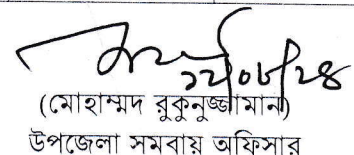 ১২/০৮/২৪
(মোহাম্মদ রুকুনুজ্জামান)
উপজেলা সমবায় অফিসার